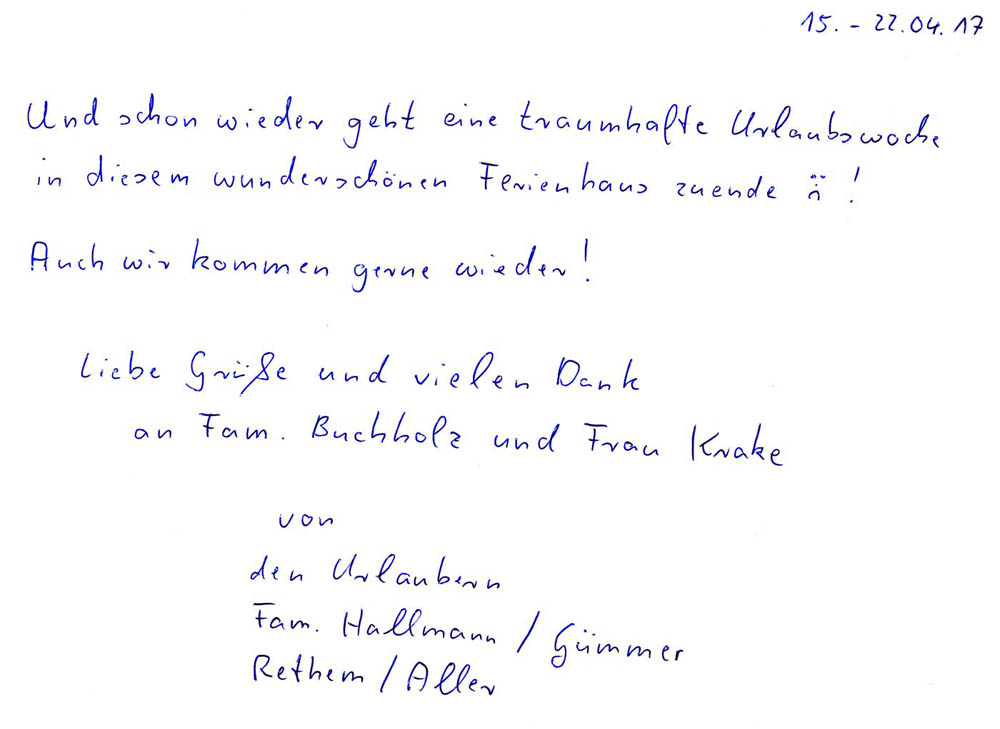 15. - 22.04.17
Und schon wieder geht eine traumhafte Urlaubswoche
in diesem wunderschönen Ferienhaus zuende !
Auch wir kommen gerne wieder!
Liebe Grüße und vielen Dank
an Fam. Buchholz und Frau Krake
von
den Urlaubern
Fam. Hallmann / Gümmer
Rethem / Aller